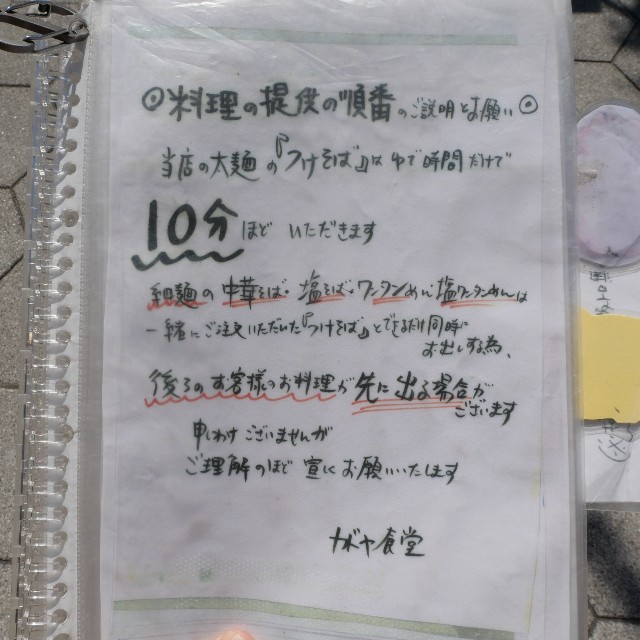 ◎料理の提供の順番のご説明とお願い◎
当店の太麺の「つけそば」はゆで時間だけで
10分ほどいただきます
細麺の中華そば・塩そば・ワンタンめん・塩ワンタンめんは
一緒にご注文いただいた「つけそば」とできるだけ同時に
お出しする為、
後ろのお客様のお料理が先に出る場合が
ございます
申しわけございませんが
ご理解のほど宜しくお願いいたします
食堂